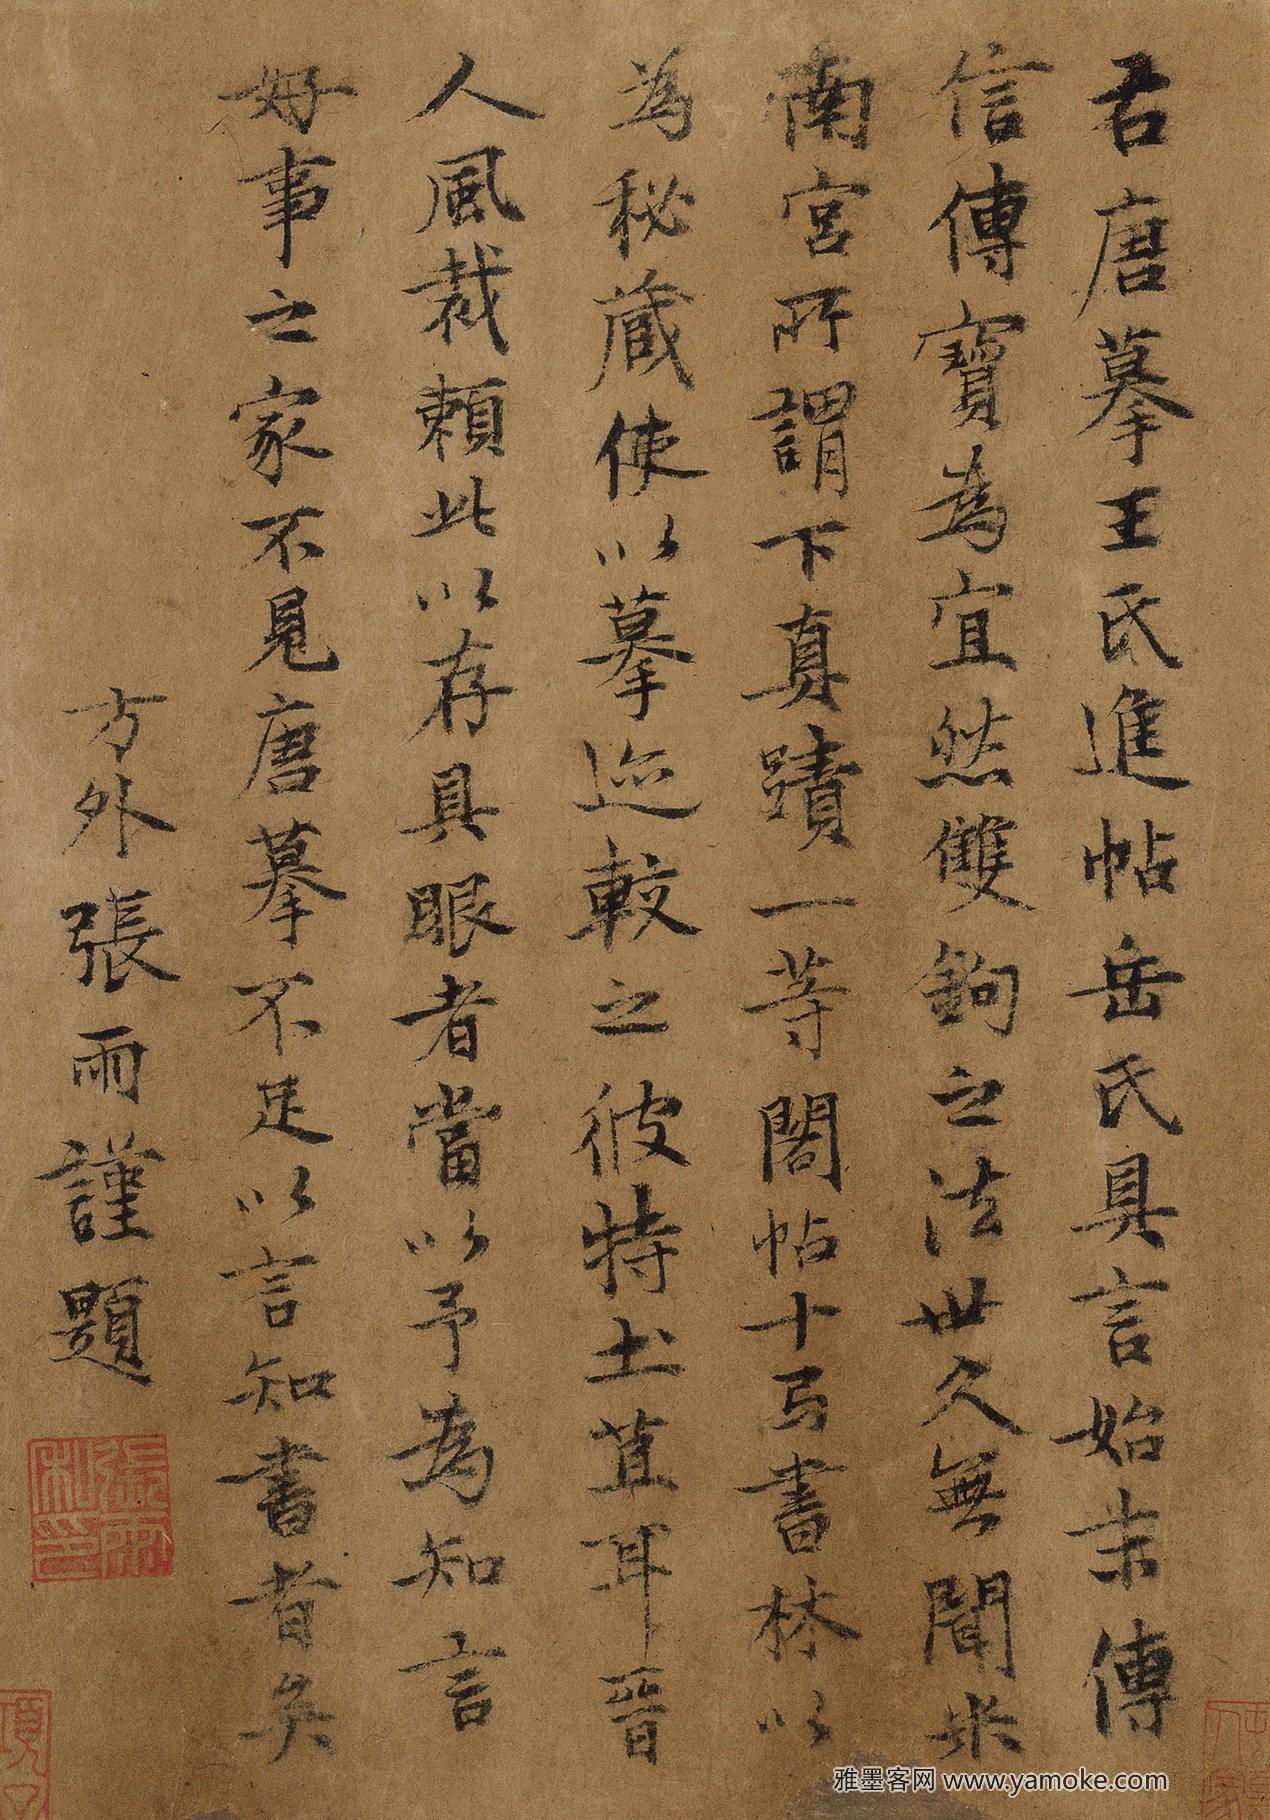 君唐摹王氏進帖岳氏具言始末傳
信傳寶為宜然雙鉤之法世久無聞米
南宮所謂下真蹟一等閣帖十弓書林以
為秘藏使以摹迹較之彼特土苴耳晉
人風裁賴此以存具眼者當以予為知言
好事之家不見唐摹不足以言知書者矣
方外張雨謹題
張雨私印
雅墨客网 www.yamoke.com